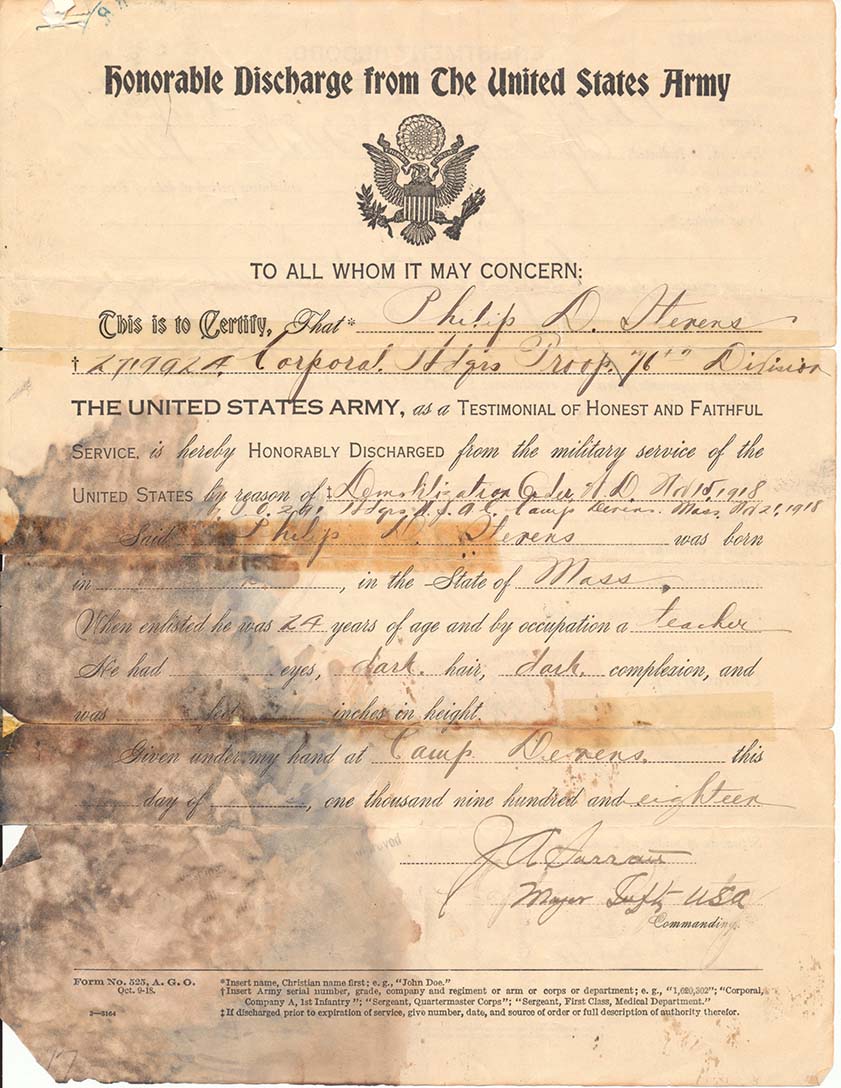 Honorable Discharge from The United States Army
TO ALL WHOM IT MAY CONCERN:
This is to Certify, That * Philip D. Stevens
† Corporal. Hdqrs Troop, 76th Division
THE UNITED STATES ARMY, as a TESTIMONIAL OF HONEST AND FAITHFUL
SERVICE, is hereby HONORABLY DISCHARGED from the military service of the
UNITED STATES by reason of ‡ Demobilization Order W.D. Nov 15, 1918
Hdqrs Camp Devens. Mass. Nov 21, 1918
Said Philip D. Stevens was born
in , in the State of Mass.
When enlisted he was 24 years of age and by occupation a teacher
He had eyes, dark. hair, dark. complexion, and
was feet inches in height.
Given under my hand at Camp Devens. this
day of , one thousand nine hundred and eighteen
J A
Major Inft USA
Commanding.
Form No. 525, A. G. O.
Oct. 9-18.
*Insert name, Christian name first; e. g., "John Doe."
†Insert Army serial number, grade, company and regiment or arm or corps or department; e. g., "1,620,302"; "Corporal,
Company A, 1st Infantry"; "Sergeant, Quartermaster Corps"; "Sergeant, First Class, Medical Department."
‡If discharged prior to expiration of service, give number, date, and source of order or full description of authority therefor.
3—3164
17